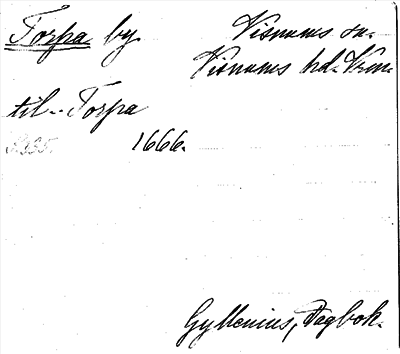 Torpa by. Visnums sn.
Visnums hd. Vrm.
til Torpa
S. 335. 1666.
Gyllenius, Dagbok.